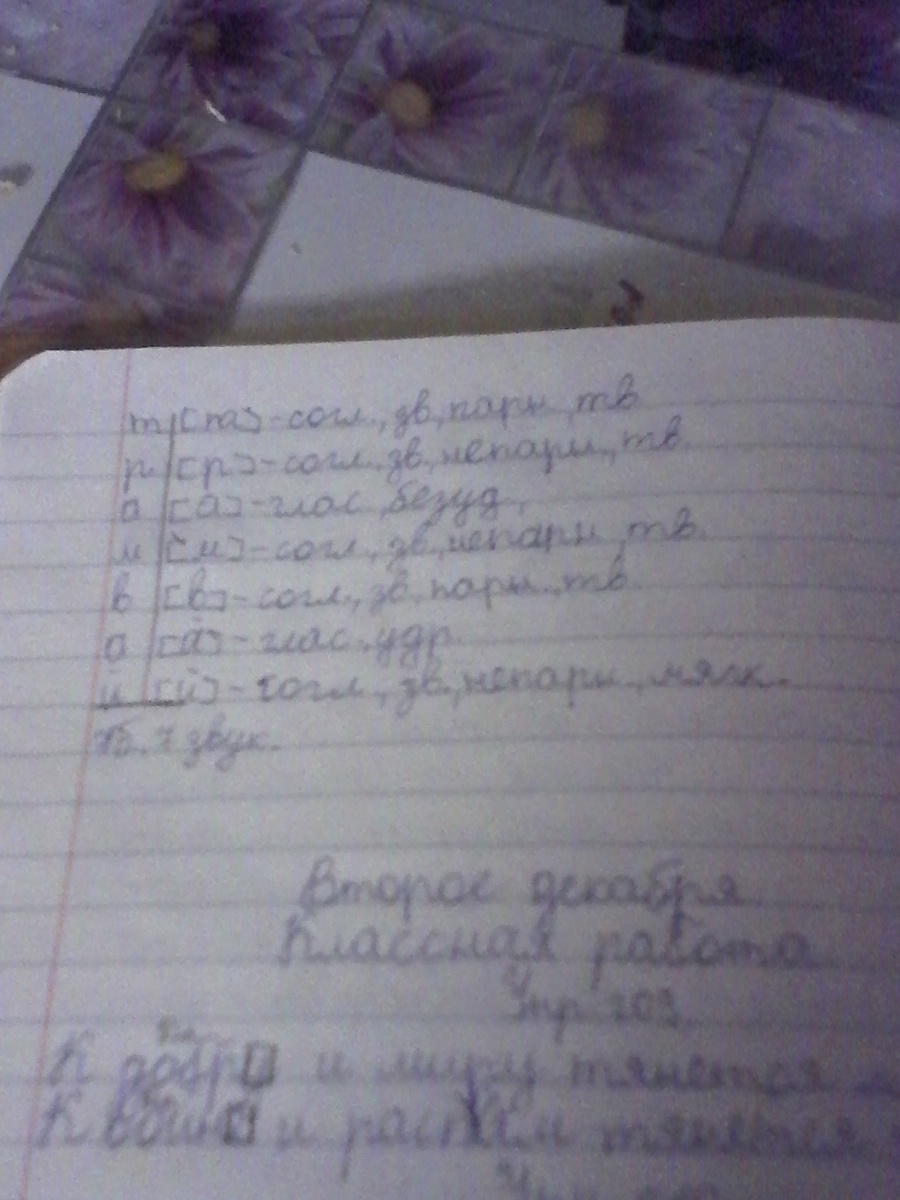 т [т] - согл., зв, парн, тв
р [р] - согл, зв., непарн., тв.
а [а] - глас, безуд,
м [м] - согл, зв., непарн, тв.
в [в] - согл., зв, парн., тв
а [а] - глас. удр.
й [й] - согл, зв., непарн., мягк.
7 звук.
Второе декабря
Классная работа
Упр 209
К добр и миру тянется
К и тянется